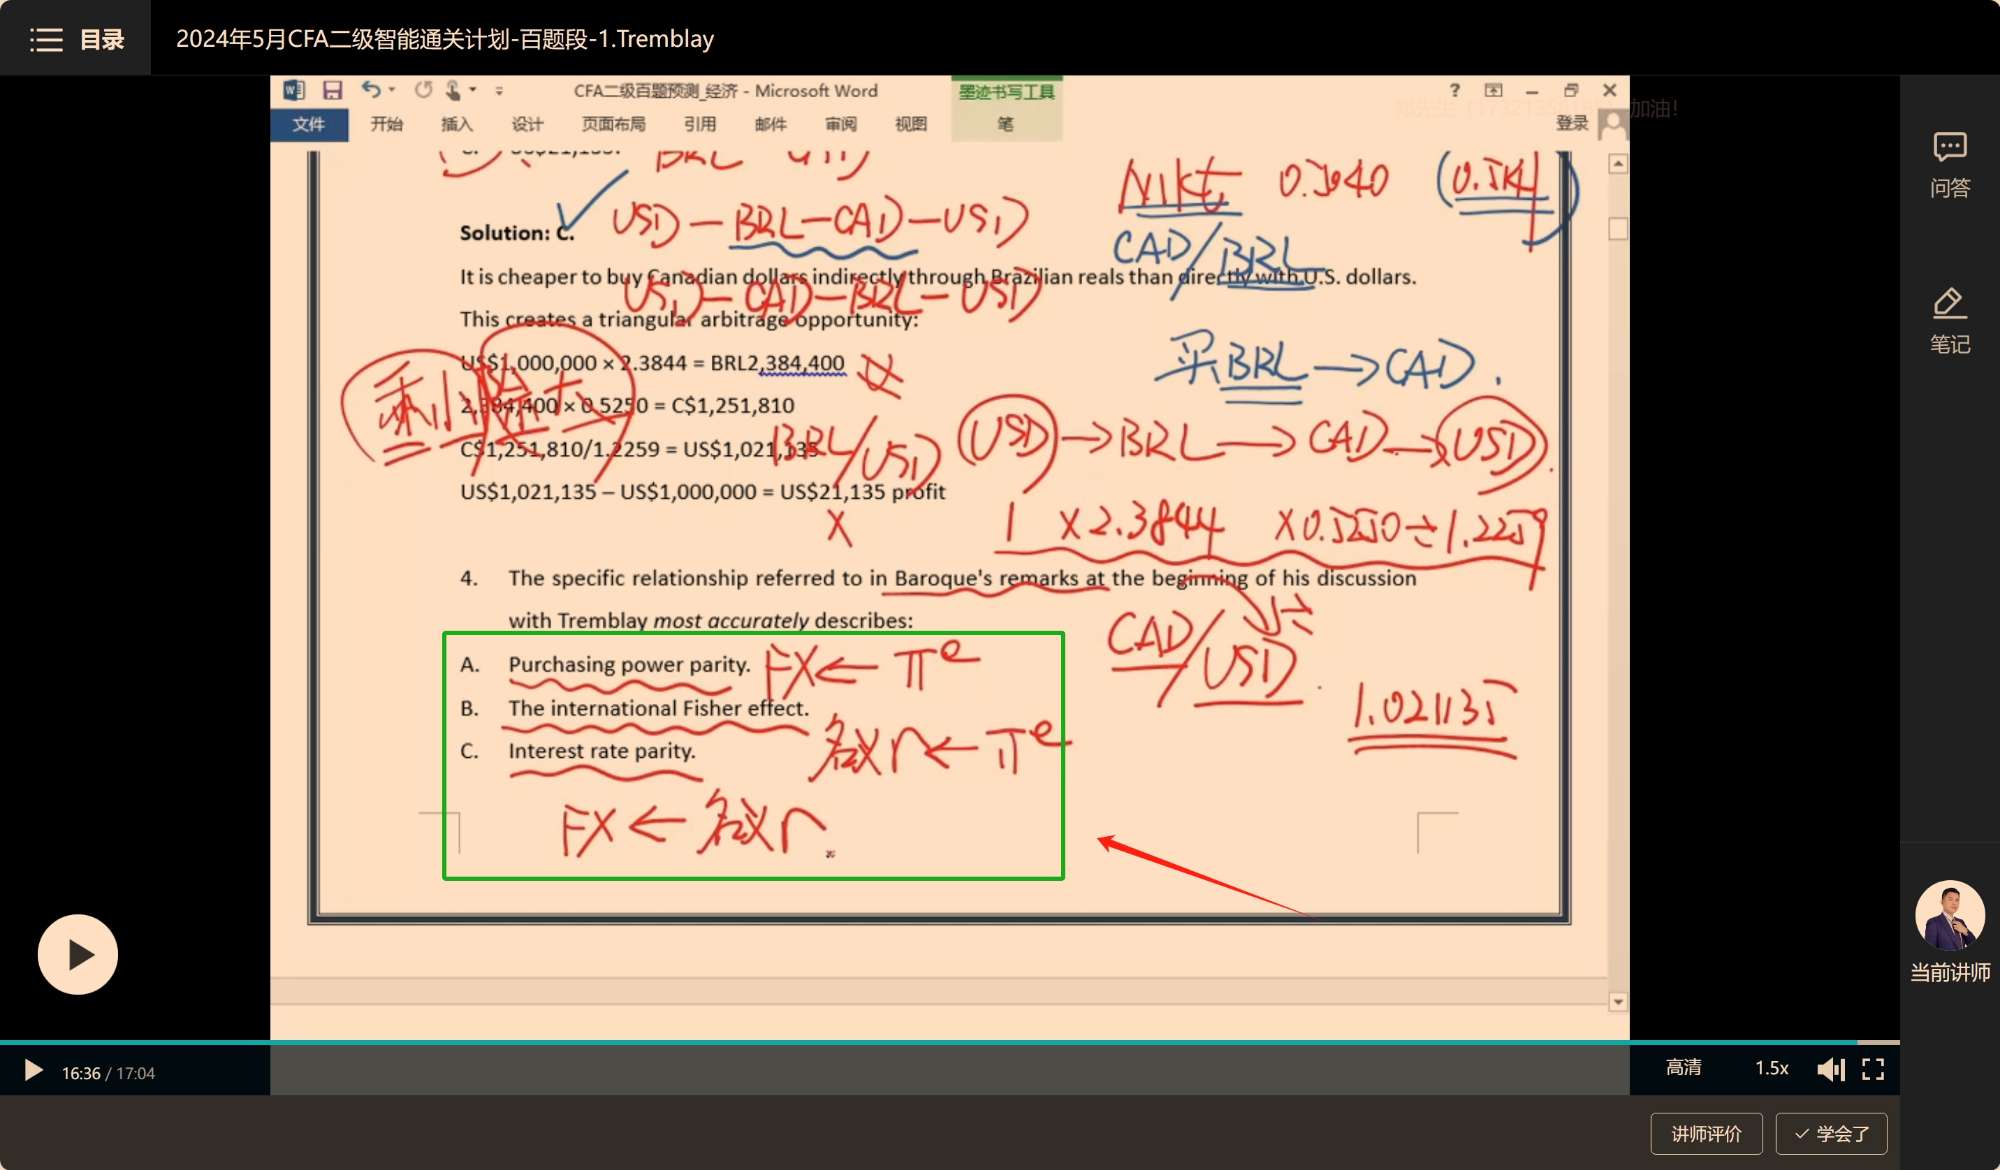 目录
2024年5月CFA二级智能通关计划-百题段-1.Tremblay
CFA二级百题预测_经济 - Microsoft Word
墨迹书写工具
?
加油!
文件 开始 插入 设计 页面布局 引用 邮件 审阅 视图 笔 登录
0.5040
CAD/BRL
Solution: C.
USD-BRL-CAD-USD
It is cheaper to buy Canadian dollars indirectly through Brazilian reals than directly with U.S. dollars.
USD-CAD-BRL-USD
This creates a triangular arbitrage opportunity:
US$1,000,000 × 2.3844 = BRL2,384,400
买BRL→CAD.
乘小除大
2,384,400 × 0.5250 = C$1,251,810
BRL/USD
USD→BRL→CAD→USD.
C$1,251,810/1.2259 = US$1,021,135
US$1,021,135 – US$1,000,000 = US$21,135 profit
×
1 ×2.3844 ×0.5250÷1.2259
4. The specific relationship referred to in Baroque's remarks at the beginning of his discussion
with Tremblay most accurately describes:
CAD/USD
÷
A. Purchasing power parity.
FX←π^e
B. The international Fisher effect.
名义r←π^e
C. Interest rate parity.
FX←名义r
1.021135
问答
笔记
当前讲师
16:36 / 17:04
高清
1.5x
讲师评价
学会了